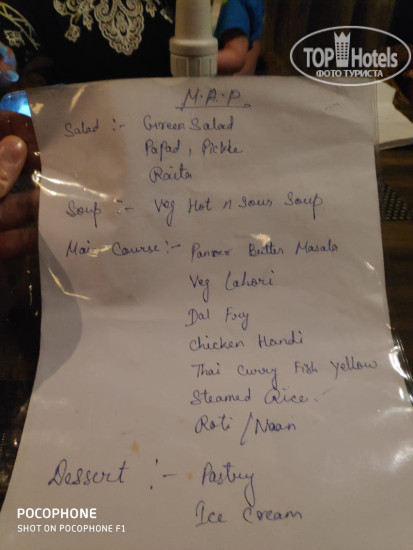 TOP Hotels
ФОТО ТУРИСТА
M.A.P.
Salad :- Green Salad
Papad, Pickle
Raita
Soup :- Veg Hot n Sour Soup
Main Course :- Panner Butter Masala
Veg Lahori
Dal Fry
Chicken Handi
Thai Curry Fish Yellow
Steamed Rice.
Roti / Naan
Dessert :- Pastry
Ice Cream
POCOPHONE
SHOT ON POCOPHONE F1